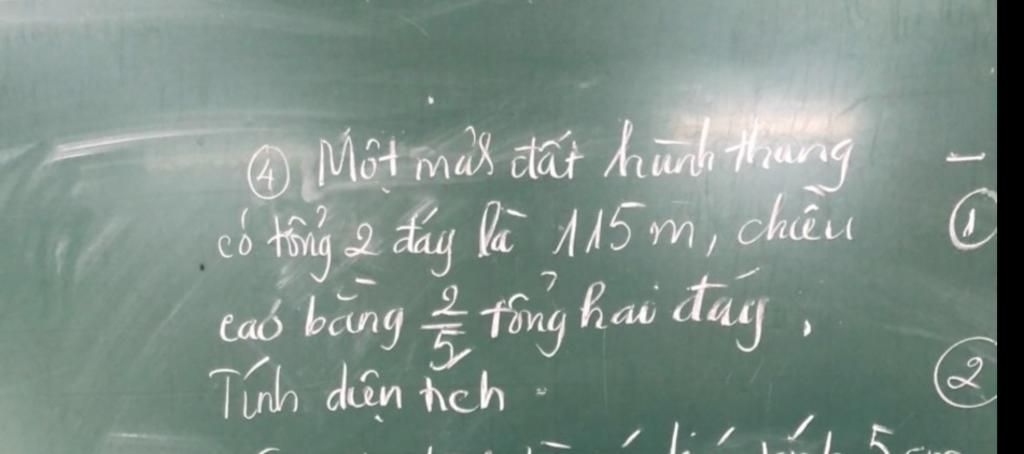 ④ Một mả8 đất hình thang
có tổng 2 đáy là 115 m, chiều
cao bằng 2/5 tổng hai đáy.
Tính diện tích
①
②